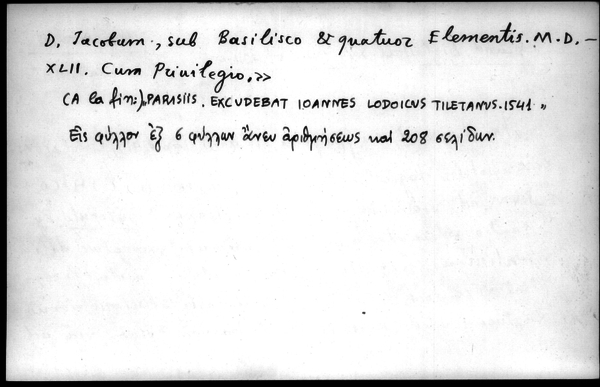 D. Jacobum., sub Basilisco & quatuor Elementis. M.D.—
XLII. Cum Priuilegio.»
(A la fin:)„PARASIIS. EXCUDEBAT IOANNES LODOICUS TILETANUS.1541„
Εἰς φύλλον ἐξ 6 φύλλων ἄνευ ἀριθμήσεως καὶ 208 σελίδων.